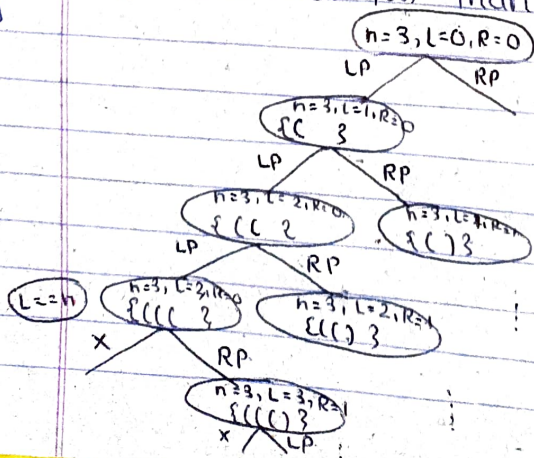 n=3, L=0, R=0
LP
RP
n=3, L=1, R=0
{( }
LP
RP
n=3, L=2, R=0
{(( }
n=3, L=1, R=1
{()}
LP
RP
L==n
n=3, L=3, R=0
{((( }
n=3, L=2, R=1
{(() }
X
RP
n=3, L=3, R=1
{((()}
X
LP